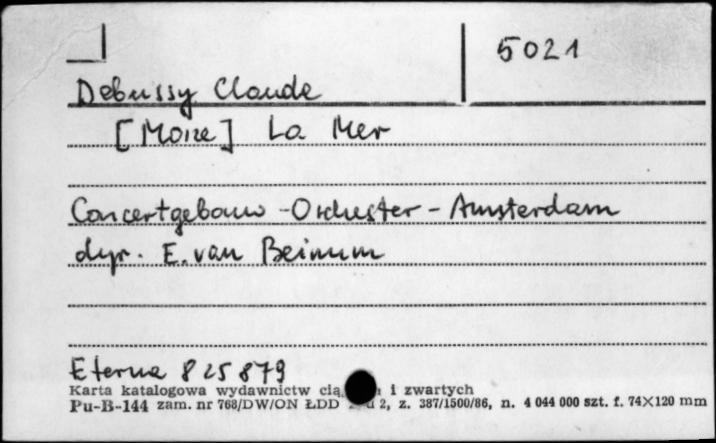 5021
Debussy Claude
[Morze] La Mer
Concertgebouw - Orchester - Amsterdam
dyr. E. van Beinum
Eterna 825879
Karta katalogowa wydawnictw i zwartych
Pu-B-144 zam. nr 768/DW/ON ŁDD 2, z. 387/1500/86, n. 4 044 000 szt. f. 74X120 mm